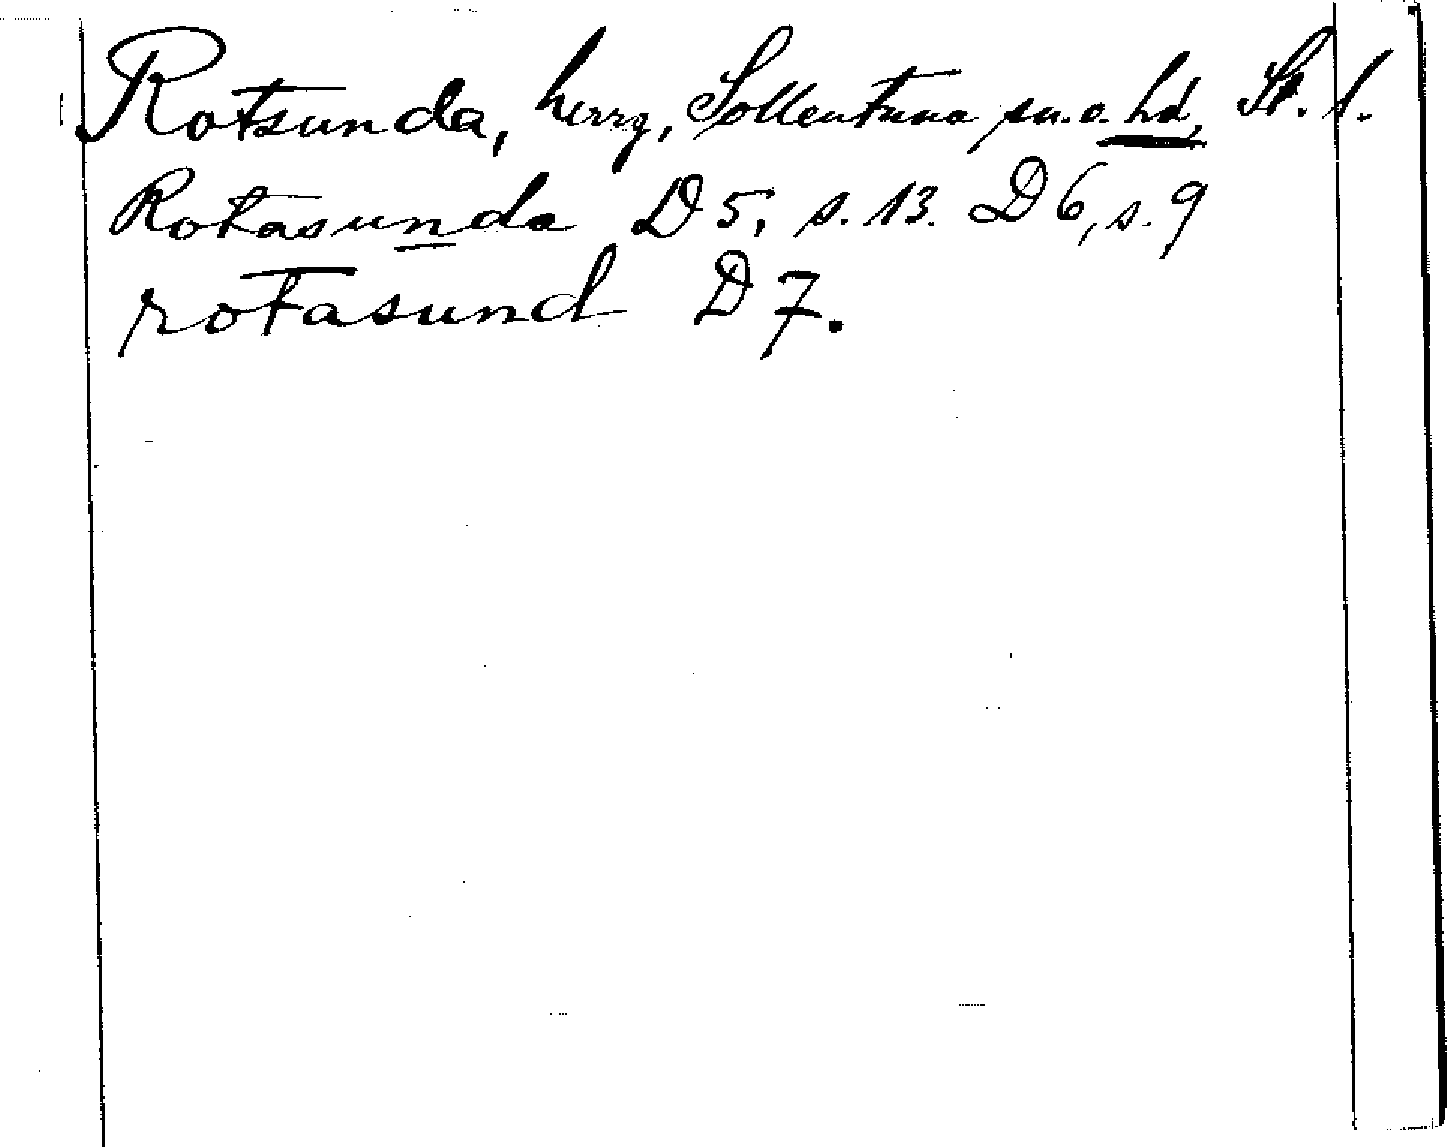 Rotsunda, herrg, Sollentuna sn. o. hd, St. l.
Rotasunda D 5, s. 13. D 6, s. 9
rotasund D 7.